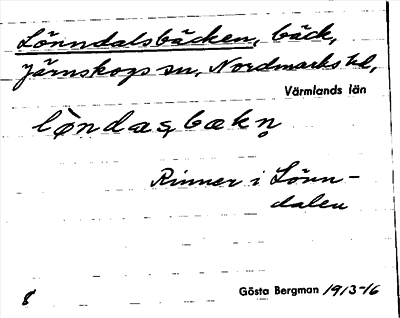 Lönndalsbäcken, bäck,
Järnskogs sn, Nordmarks hd,
Värmlands län
lòndasbækn̥
Rinner i Lönn-
dalen
8 Gösta Bergman 1913-16